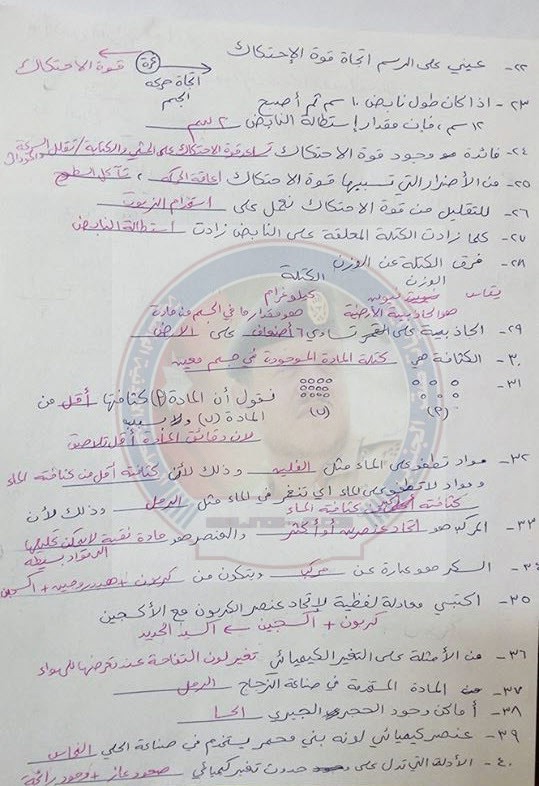 ٢٢- عيني على الرسم اتجاة قوة الإحتكاك قوة الاحتكاك
اتجاة حركة الجسم
٢٣- اذا كان طول نابض ١٠سم ثم أصبح
١٢سم ، فإن مقدار إستطالة النابض ٢سم
٢٤- فائدة وجود قوة الاحتكاك تساعد قوة الاحتكاك على المشي والكتابة / تقلل السرعة
٢٥- من الأضرار التي تسببها قوة الاحتكاك اعاقة الحركة ، تآكل السطوح
٢٦- للتقليل من قوة الاحتكاك نعمل على استخدام الزيوت
٢٧- كلما زادت الكتلة المعلقة على النابض زادت استطالة النابض
٢٨- فرق الكتلة عن الوزن
الوزن الكتلة
يقاس نيوتن كيلوغرام
هو الجاذبية الأرضية هو مقدار ما في الجسم من مادة
٢٩- الجاذبية على القمر تساوي ٦ أضعاف على الارض
٣٠- الكثافة هي كتلة المادة الموجودة في جسم معين
٣١- نقول أن المادة (٢) كثافتها أقل من
المادة (ں) والسبب
لان دقائق المادة أقل تلاصق
٣٢- مواد تطفو على الماء مثل الفلين وذلك لأن كثافته أقل من كثافة الماء
ومواد لا تطفو على الماء اي تنغمر في الماء مثل الرمل وذلك لأن
كثافته كثافة الماء
٣٣- المركب هو اتحاد عنصرين أو أكثر والعنصر هو مادة نقية لا يمكن تحليلها
الى مواد بسيطة
٣٤- السكر هو عبارة عن مركب ويتكون من كربون + هيدروجين + اكسجين
٣٥- اكتبي معادلة لفظية لإتحاد عنصر الكربون مع الأكسجين
كربون + اكسجين ← اكسيد الحديد
٣٦- من الأمثلة على التغير الكيميائي تغير لون التفاحة عند تعرضها للهواء
٣٧- من المادة المستخدمة في صناعة الزجاج الرمل
٣٨- أماكن وجود الحجر الجيري الحسا
٣٩- عنصر كيميائي لونه بني محمر يستخدم في صناعة الحلي النحاس
٤٠- الأدلة التي تدل على حدوث تغير كيميائي صعود غاز + وجود رائحة